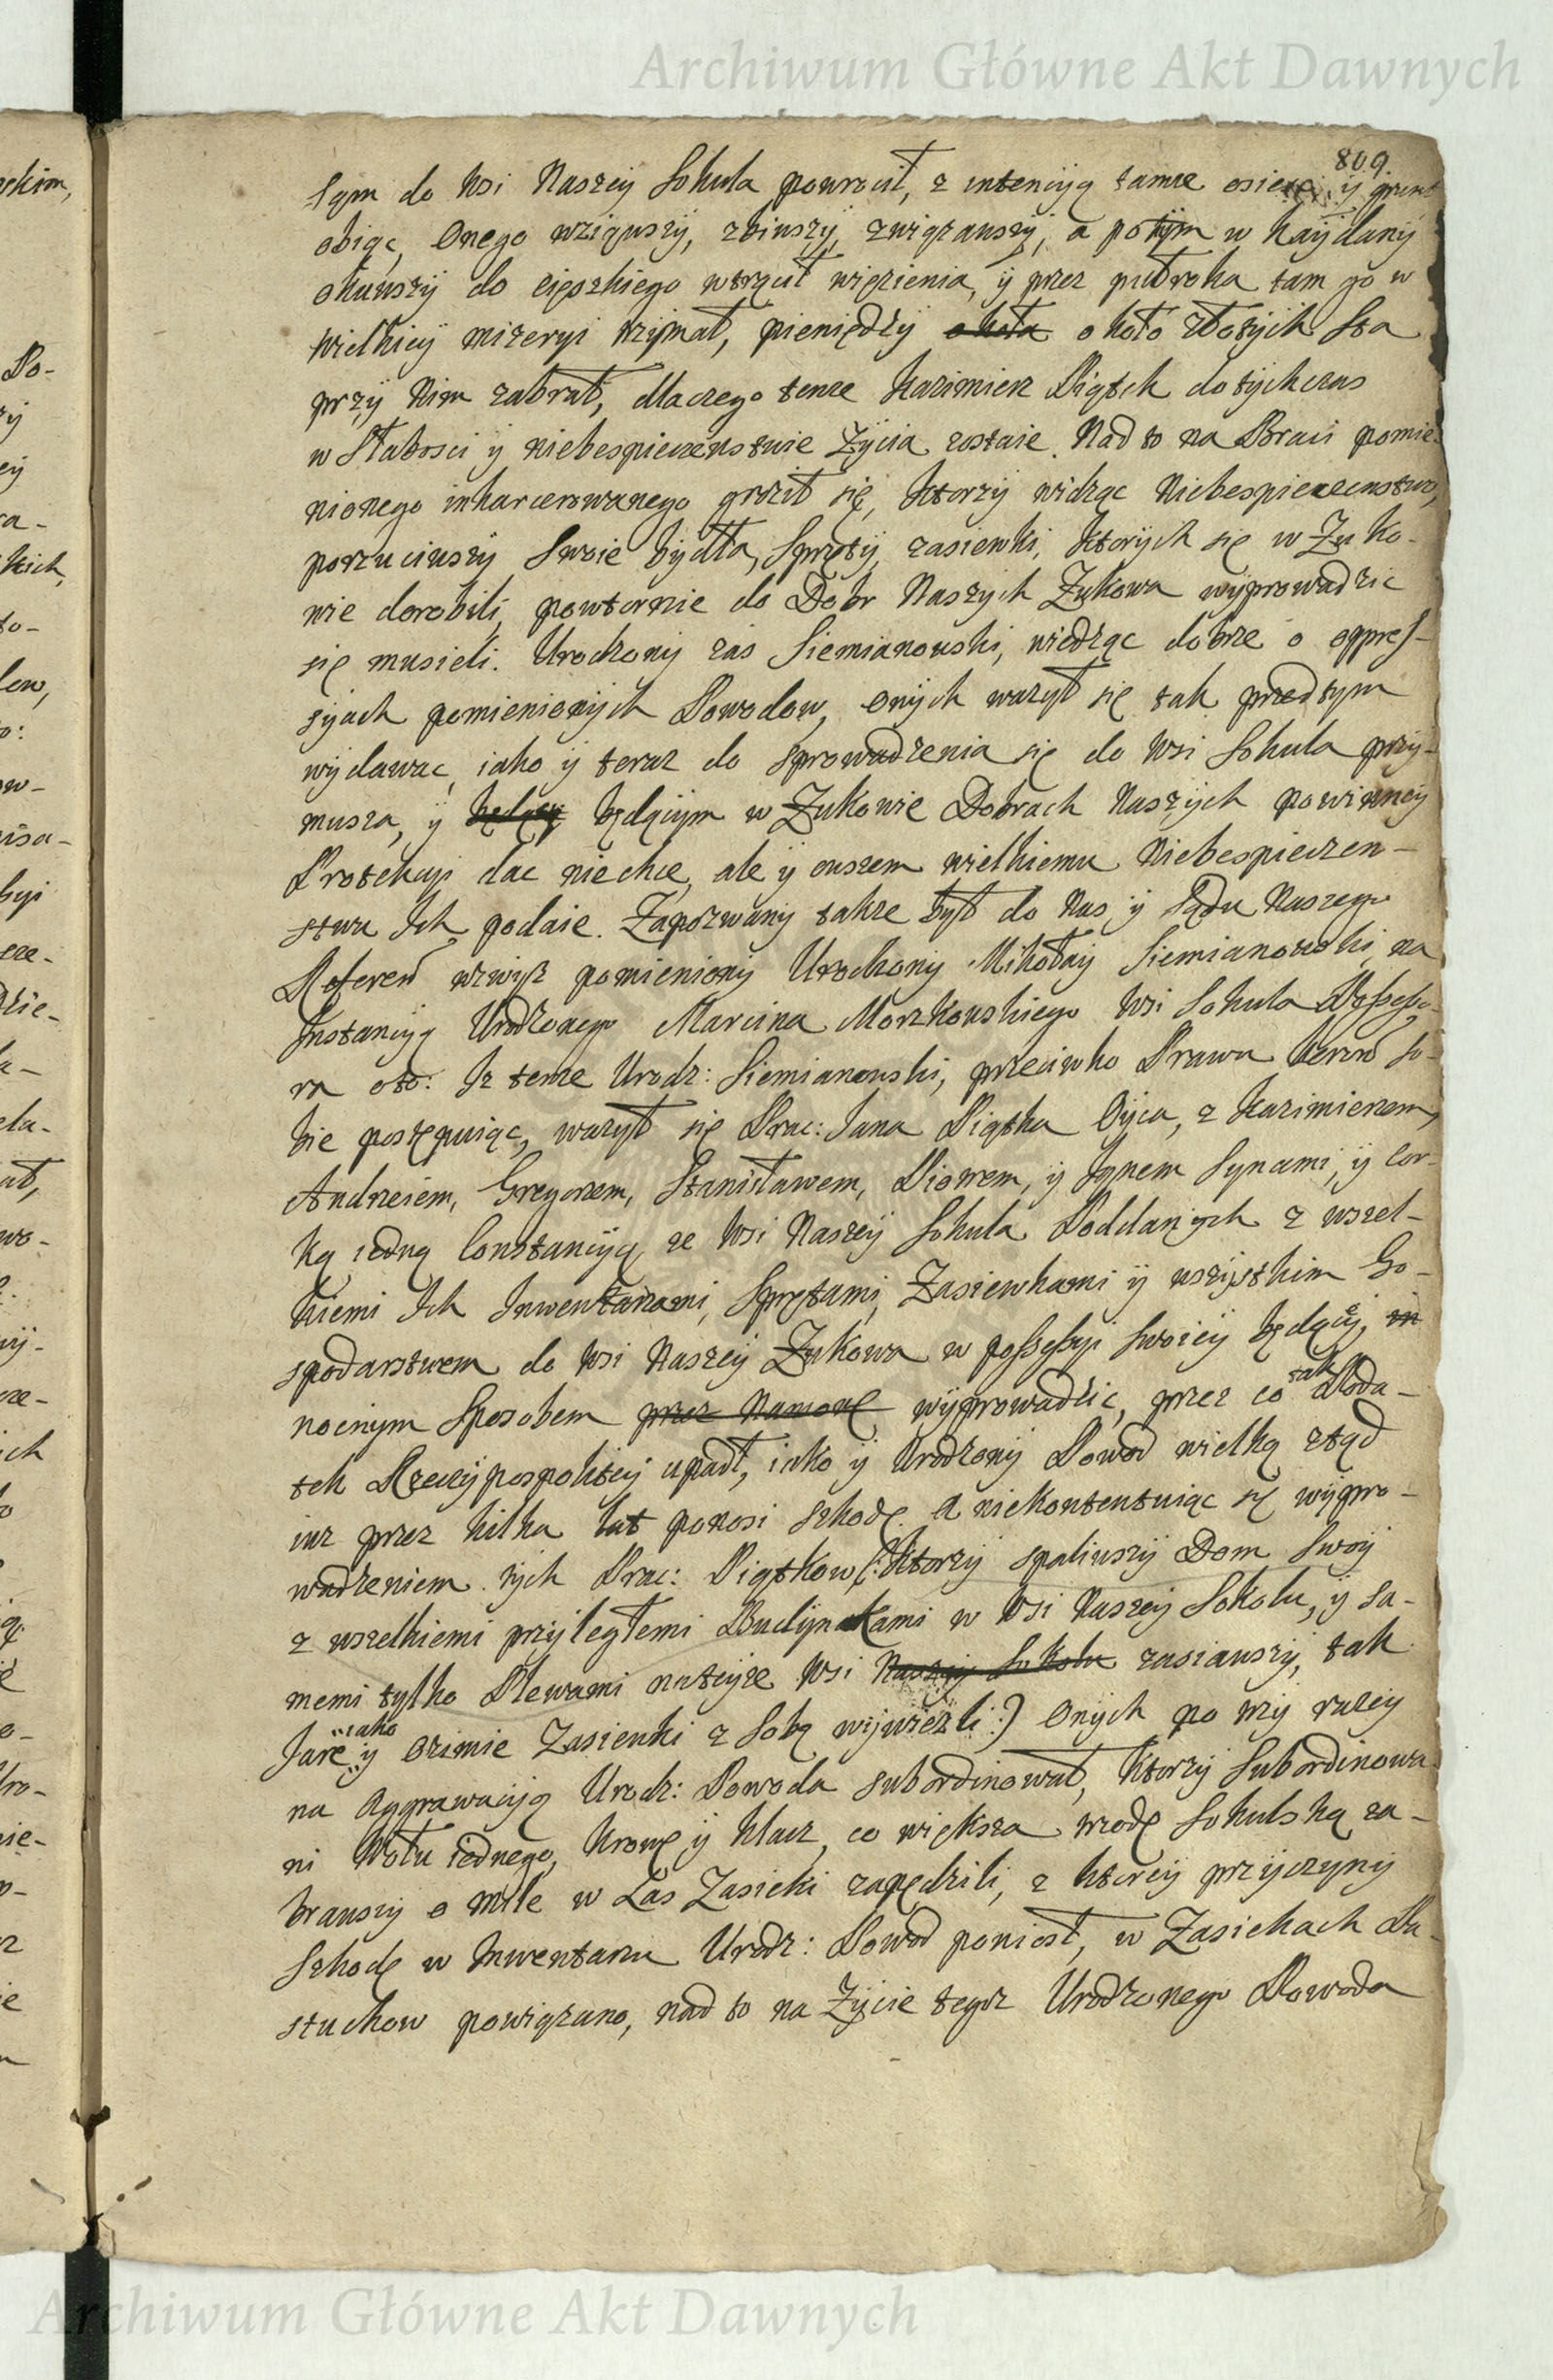 Archiwum Główne Akt Dawnych
809.
sąm do Wsi Naszeÿ Sokuła powrocił, z intencyią tamze osiesc ÿ grunt
obiąc, Onego wziąwszÿ, zbiwszÿ, związawszÿ, a potÿm w Kaÿdanÿ
okuwszÿ do cięszkiego wtrącił więzienia, ÿ przez pułroka tam go w
wielkieÿ mizeryi trzÿmał, pieniędzÿ okoła około złotÿch Sta
przÿ Nim zabrał, dlaczego tenze Kazimierz Piątek dotÿchczas
w Słabosci ÿ niebespieczenstwie Zÿcia zostaie. Nad to na Braci pomie-
nionego inkarcerowanego groził się, Ktorzÿ widząc Niebespieczenstwo,
porzuciwszÿ Swoie bÿdła, Sprętÿ, zasiewki, Ktorÿch się w Zuko-
wie dorobili, powtornie do Dobr Naszÿch Zukowa wÿprowadzic
się musieli. Urodzonÿ zas Siemianowski, wiedząc dobrze o oppres-
syach pomienionÿch Powodow, Onÿch wazÿł się tak przedtym
wÿdawac, iako ÿ teraz do sprowadzenia się do Wsi Sokuła przÿ-
musza, ÿ będącÿ będącÿm w Zukowie Dobrach Naszÿch powinneÿ
Protekcyi dac niechce, ale ÿ owszem wielkiemu Niebespieczen-
stwu Ich podaie. Zapozwanÿ takze bÿł do Nas ÿ Sądu Naszego
Referen wzwÿz pomienionÿ Urodzonÿ Mikołaÿ Siemianowski, na
Instancyią Urodzonego Marcina Morzkowskiego Wsi Sokuła Possesso-
ra oto: Iz tenze Urodz: Siemianowski, przeciwko Prawu terow so-
bie postępuiąc, wazÿł się Prac: Jana Piątka Oÿca, z Kazimierzem,
Andrzeiem, Gregorzem, Stanisławem, Piotrem, ÿ Synami, ÿ Cor-
ką iedną Constancyią ze Wsi Naszeÿ Sokuła Poddanÿch z wszel-
kiemi Ich Inwentarzami, Sprętami, Zasiewkami ÿ wszÿstkim Go-
spodarstwem do Wsi Naszeÿ Zukowa w possessyi Swoieÿ będąceÿ, in
nocnym Sposobem przez Namowę wÿprowadzic, przez co tak Poda-
tek Rzeczÿpospoliteÿ upadł, iako ÿ Urodzonÿ Powod wielką ztąd
iuz przez kilka lat ponosi szkodę. A niekontentuiąc się wÿpro-
wadzeniem tÿch Prac: Piątkow (: Ktorzÿ spaliwszÿ Dom Swoÿ
z wszelkiemi przÿległemi Budÿnkami w Wsi Naszeÿ Sokołu, ÿ sa-
memi tylko Plewami nateÿze Wsi Naszeÿ Sokołu zasiawszÿ, tak
Jare iako ÿ Ozimie Zasiewki z Sobą wÿwiezli :) Onÿch po trzÿ razeÿ
na Aggrawacyią Urodz: Powoda subordinował, Ktorzÿ Subordinowa-
ni Wołu iednego, Krowę ÿ Klacz, co większa trzodę Sokulską za-
brawszÿ o mile w Las Zasieki zapędzili, z ktoreÿ przÿczÿnÿ
Szkodę w Inwentarzu Urodz: Powod poniosł, w Zasiekach Pa-
stuchow powiązano, nad to na Zÿcie tegoz Urodzonego Powoda
Archiwum Główne Akt Dawnych